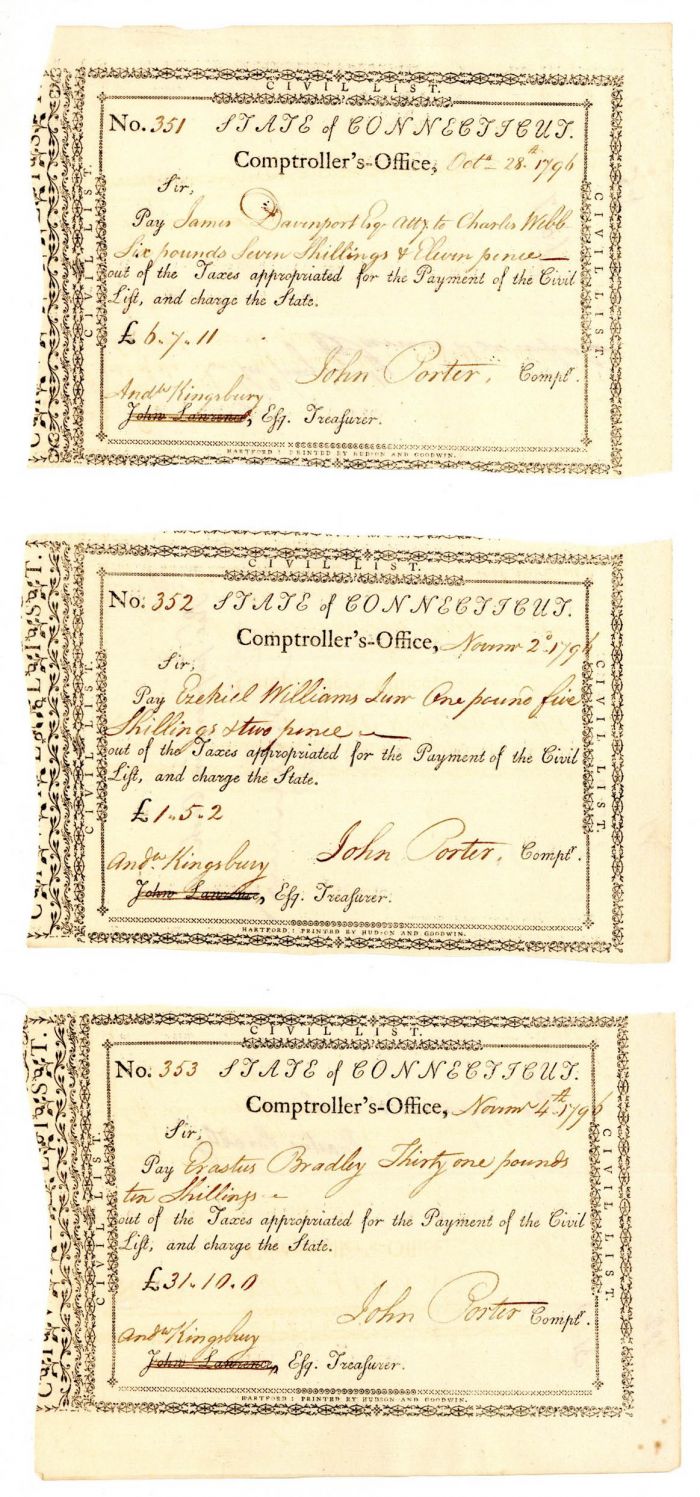 CIVIL LIST.
No. 351 STATE of CONNECTICUT.
Comptroller's-Office, Octr. 28th. 1796
Sir,
Pay James Davenport Esqr Atty to Charles Webb
Six pounds Seven Shillings & Eleven pence
out of the Taxes appropriated for the Payment of the Civil
List, and charge the State.
£ 6.. 7.. 11
John Porter, Comptr.
Andw Kingsbury
John Lawrence, Esq. Treasurer.
HARTFORD : PRINTED BY HUDSON AND GOODWIN.
CIVIL LIST.
CIVIL LIST.
CIVIL LIST.
No. 352 STATE of CONNECTICUT.
Comptroller's-Office, Novmr 2d. 1796
Sir,
Pay Ezekiel Williams Junr One pound five
Shillings & two pence
out of the Taxes appropriated for the Payment of the Civil
List, and charge the State.
£ 1.. 5.. 2
John Porter, Comptr.
Andw Kingsbury
John Lawrence, Esq. Treasurer.
HARTFORD : PRINTED BY HUDSON AND GOODWIN.
CIVIL LIST.
CIVIL LIST.
CIVIL LIST.
No. 353 STATE of CONNECTICUT.
Comptroller's-Office, Novmr 4th. 1796
Sir,
Pay Erastus Bradley Thirty one pounds
ten Shillings
out of the Taxes appropriated for the Payment of the Civil
List, and charge the State.
£ 31.. 10.. 0
John Porter Comptr.
Andw Kingsbury
John Lawrence, Esq. Treasurer.
HARTFORD : PRINTED BY HUDSON AND GOODWIN.
CIVIL LIST.
CIVIL LIST.